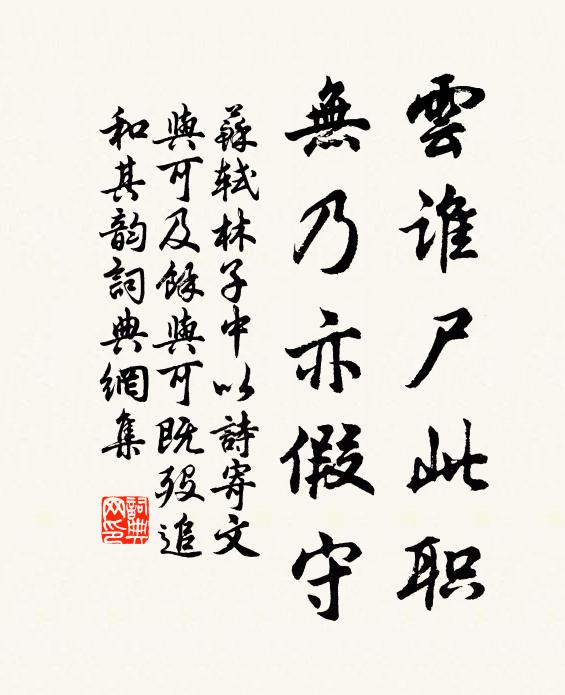 雲谁尸此职
無乃亦假守
蘇轼林子中以詩寄文
與可及餘與可既殁追
和其韵詞典網集
詞典網印